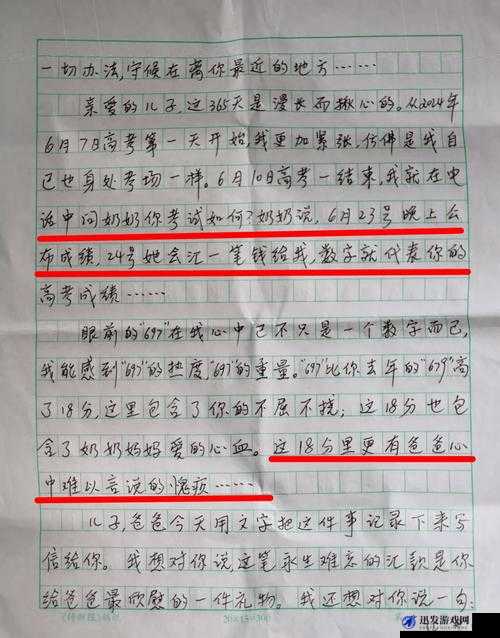 一切办法,守候在离你最近的地方……
亲爱的儿子,这365天是漫长而揪心的。从2024年
6月7日高考第一天开始,我更加紧张,仿佛是我自
己也身处考场一样。6月10日高考一结束,我就在电
话中问奶奶你考试如何?奶奶说,6月23号晚上公
布成绩,24号她会汇一笔钱给我,数字就代表你的
高考成绩……
眼前的"697"在我心中已不只是一个数字而已,
我能感到"697"的热度"697"的重量。"697"比你去年的"679"高
了18分,这里包含了你的不屈不挠;这18分也包
含了奶奶妈妈爱的心血。这18分里更有爸爸心
中难以言说的愧疚……
儿子,爸爸今天用文字把这件事记录下来写
信给你。我想对你说,这笔永生难忘的汇款是你
给爸爸最欣慰的一件礼物。我还想对你说一句:
20×15=300
迅发游戏网